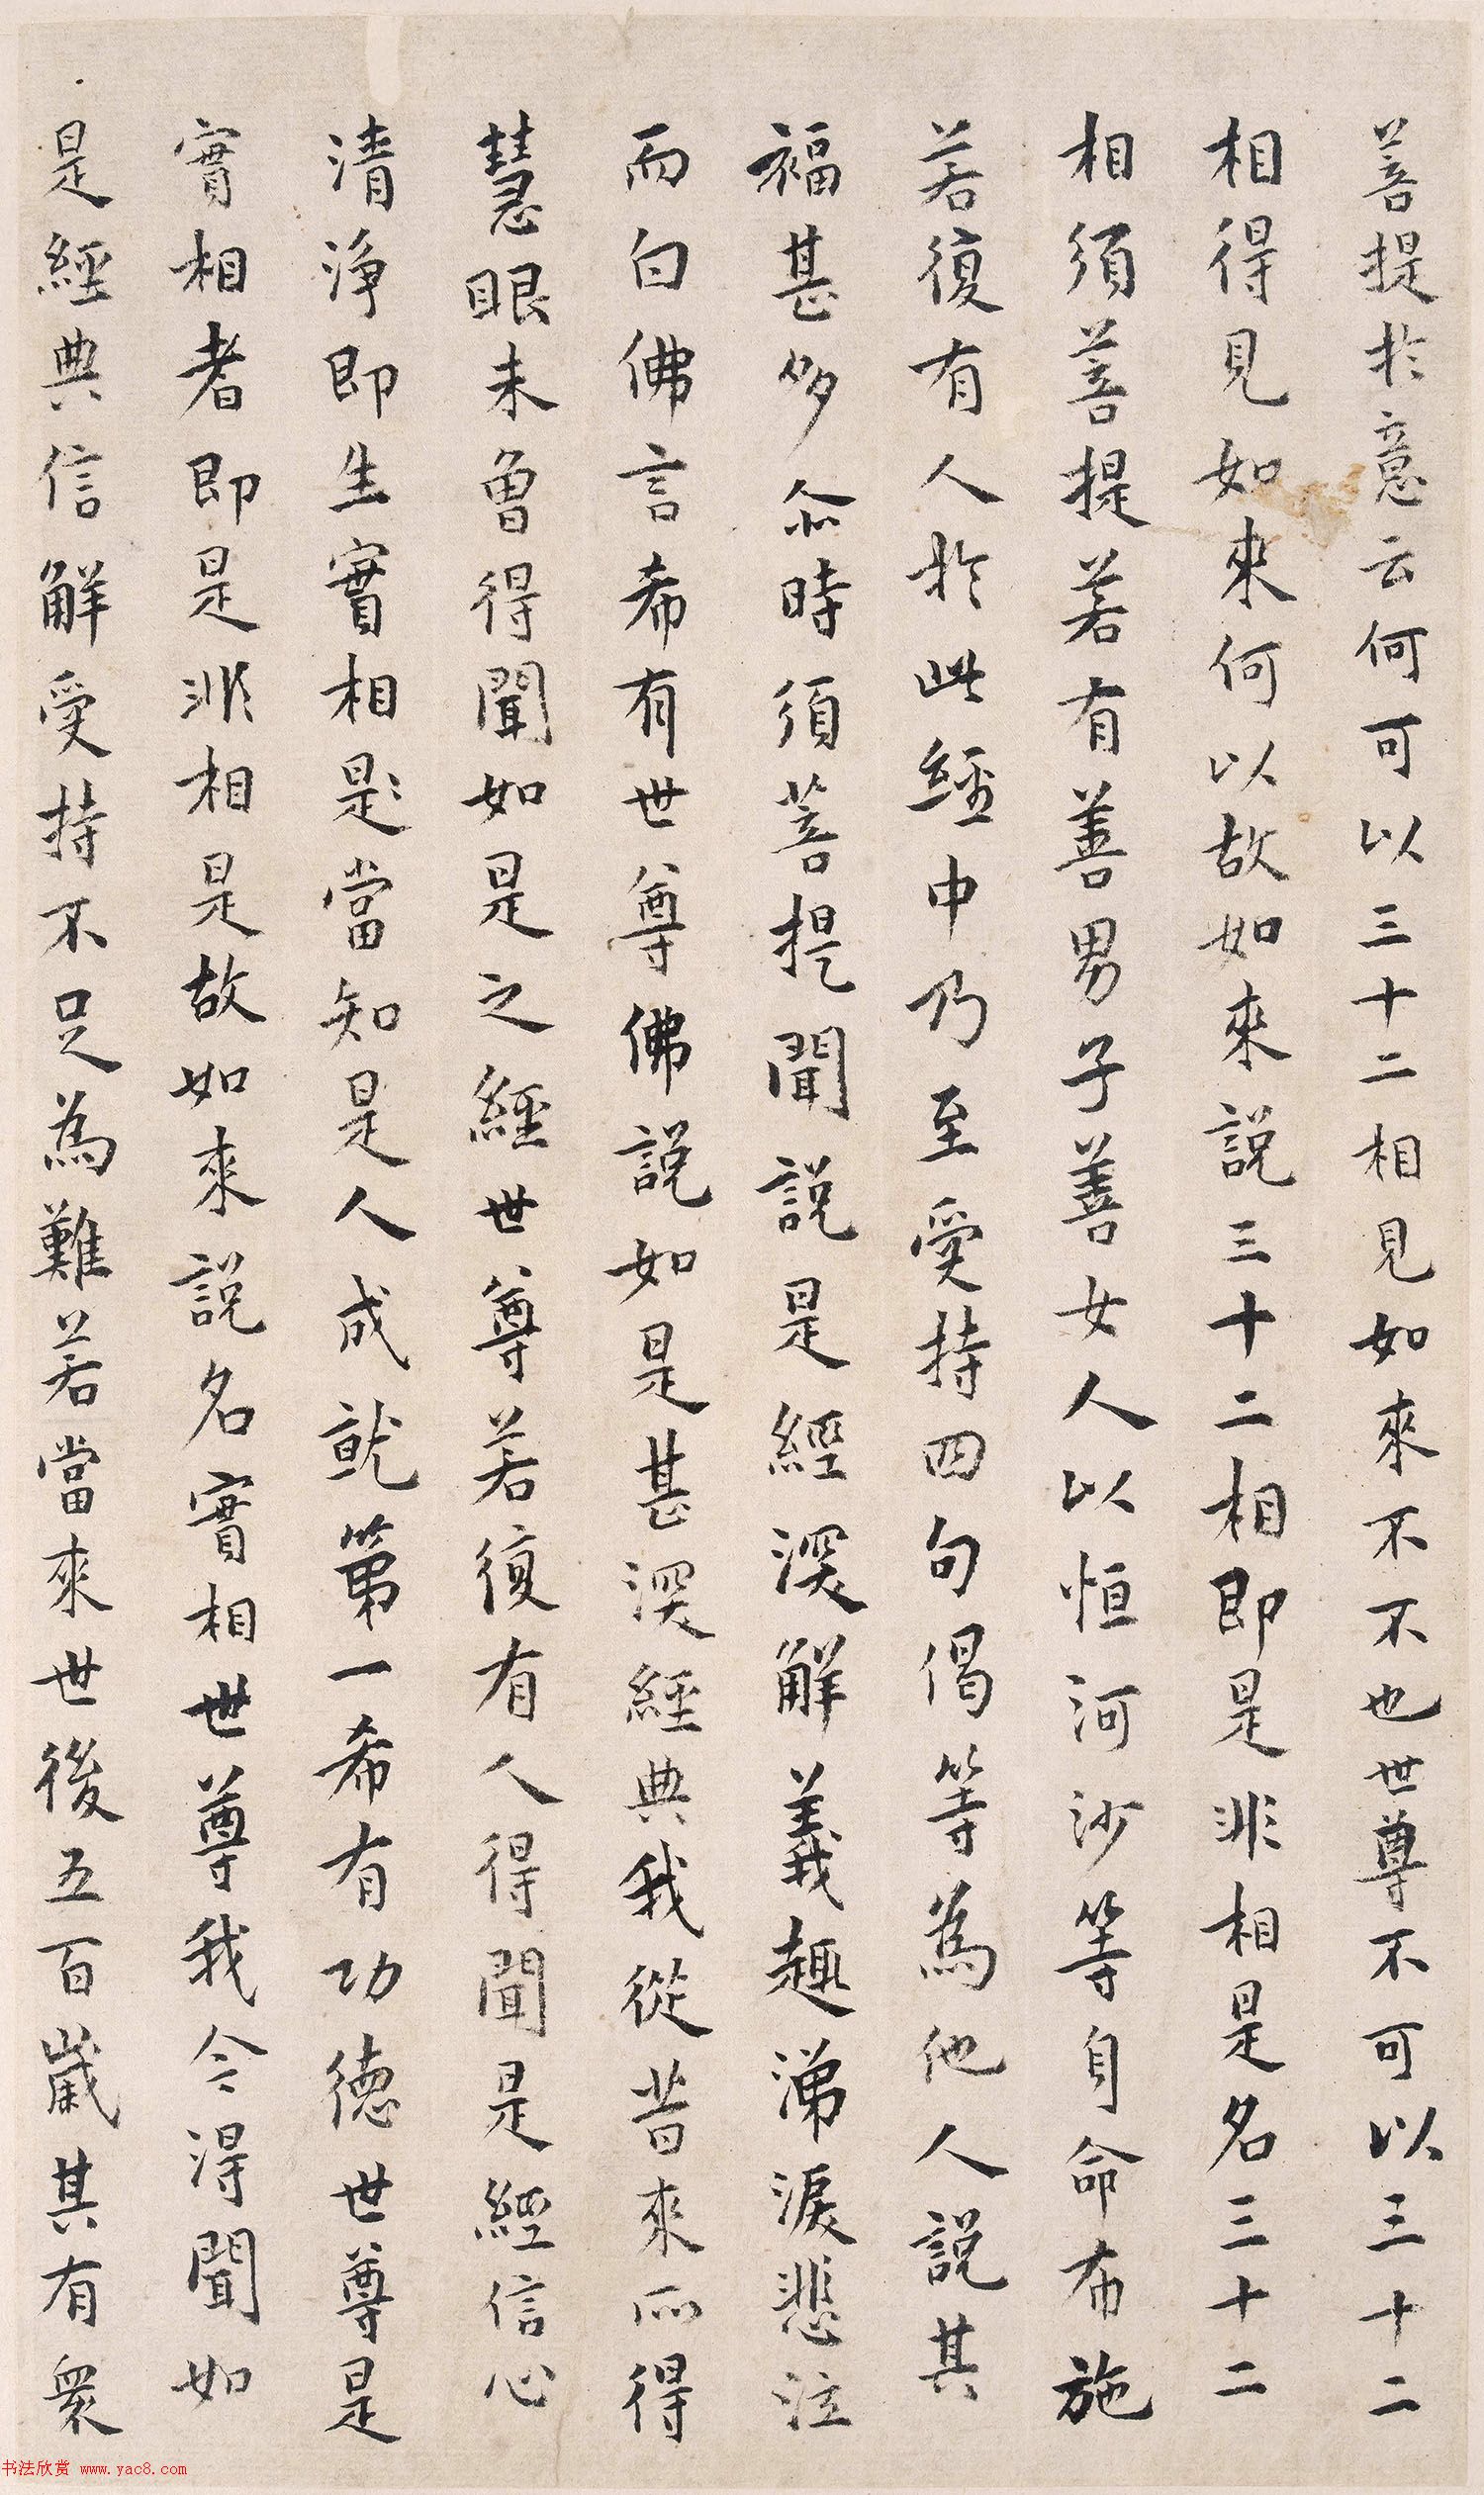 菩提於意云何可以三十二相見如來不不也世尊不可以三十二
相得見如來何以故如來說三十二相即是非相是名三十二
相須菩提若有善男子善女人以恒河沙等身命布施
若復有人於此經中乃至受持四句偈等為他人說其
福甚多尒時須菩提聞說是經深解義趣涕淚悲泣
而白佛言希有世尊佛說如是甚深經典我從昔來所得
慧眼未曾得聞如是之經世尊若復有人得聞是經信心
清淨即生實相是當知是人成就第一希有功德世尊是
實相者即是非相是故如來說名實相世尊我今得聞如
是經典信解受持不足為難若當來世後五百歲其有眾
书法欣赏 www.yac8.com